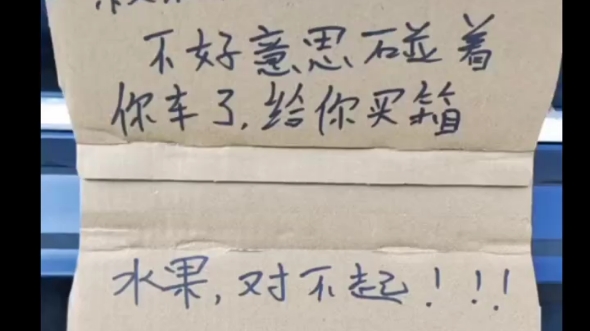 不好意思碰着
你车了,给你买箱
水果,对不起!!!!